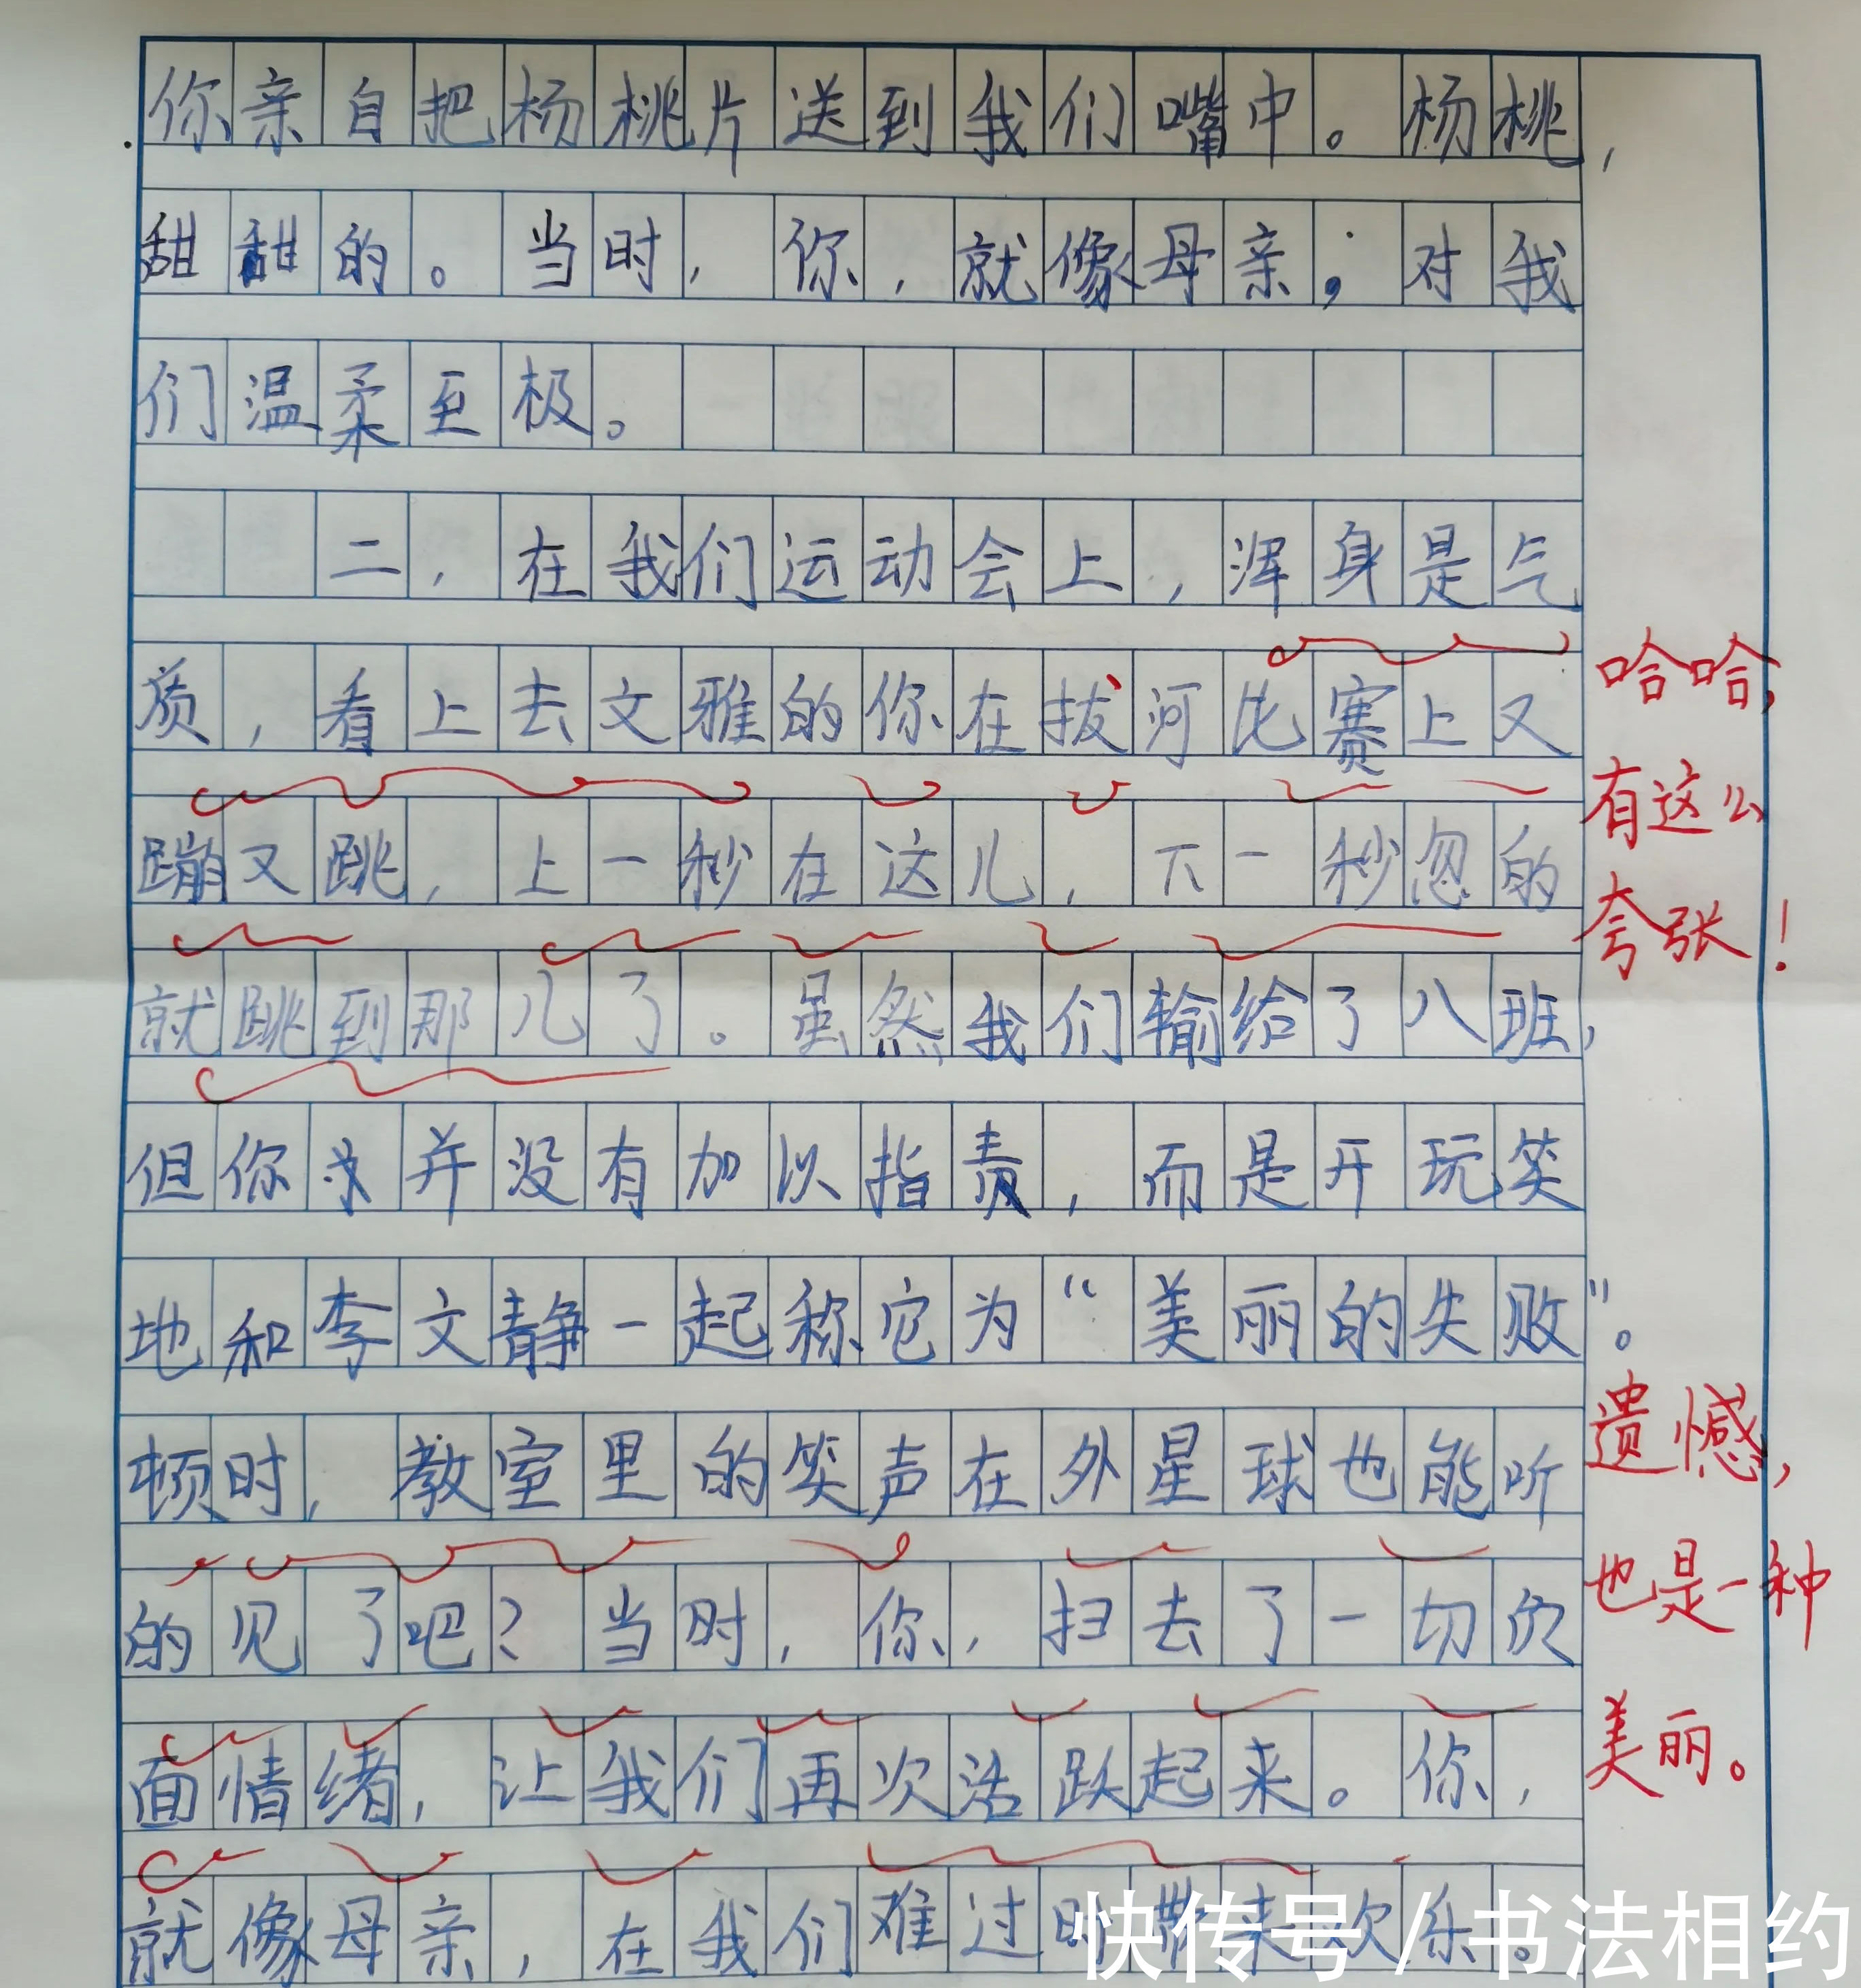 你亲自把杨桃片送到我们嘴中。杨桃,
甜甜的。当时,你,就像母亲,对我
们温柔至极。
二,在我们运动会上,浑身是气
质,看上去文雅的你在拔河比赛上又
蹦又跳,上一秒在这儿,下一秒忽的
就跳到那儿了。虽然我们输给了八班,
但你并没有加以指责,而是开玩笑
地和李文静一起称它为“美丽的失败”。
顿时,教室里的笑声在外星球也能听
的见了吧?当时,你,扫去了一切负
面情绪,让我们再次活跃起来。你,
就像母亲,在我们难过时带来欢乐。
哈哈,
有这么
夸张!
遗憾,
也是一种
美丽。
快传号/书法相约